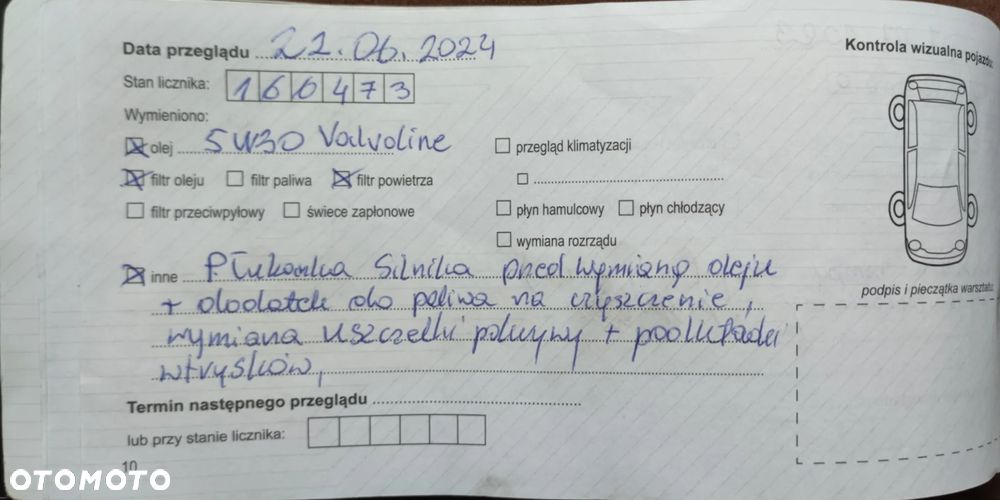 Data przeglądu 21.06.2024
Kontrola wizualna pojazdu:
Stan licznika: 160473
Wymieniono:
olej 5W30 Valvoline
przegląd klimatyzacji
filtr oleju filtr paliwa filtr powietrza
filtr przeciwpyłowy świece zapłonowe
płyn hamulcowy płyn chłodzący
wymiana rozrządu
inne Płukanka Silnika przed wymianą oleju
+ dodatek do paliwa na czyszczenie,
wymiana uszczelki pokrywy + podkładki
wtrysków,
podpis i pieczątka warsztatu
Termin następnego przeglądu
lub przy stanie licznika:
10
OTOMOTO